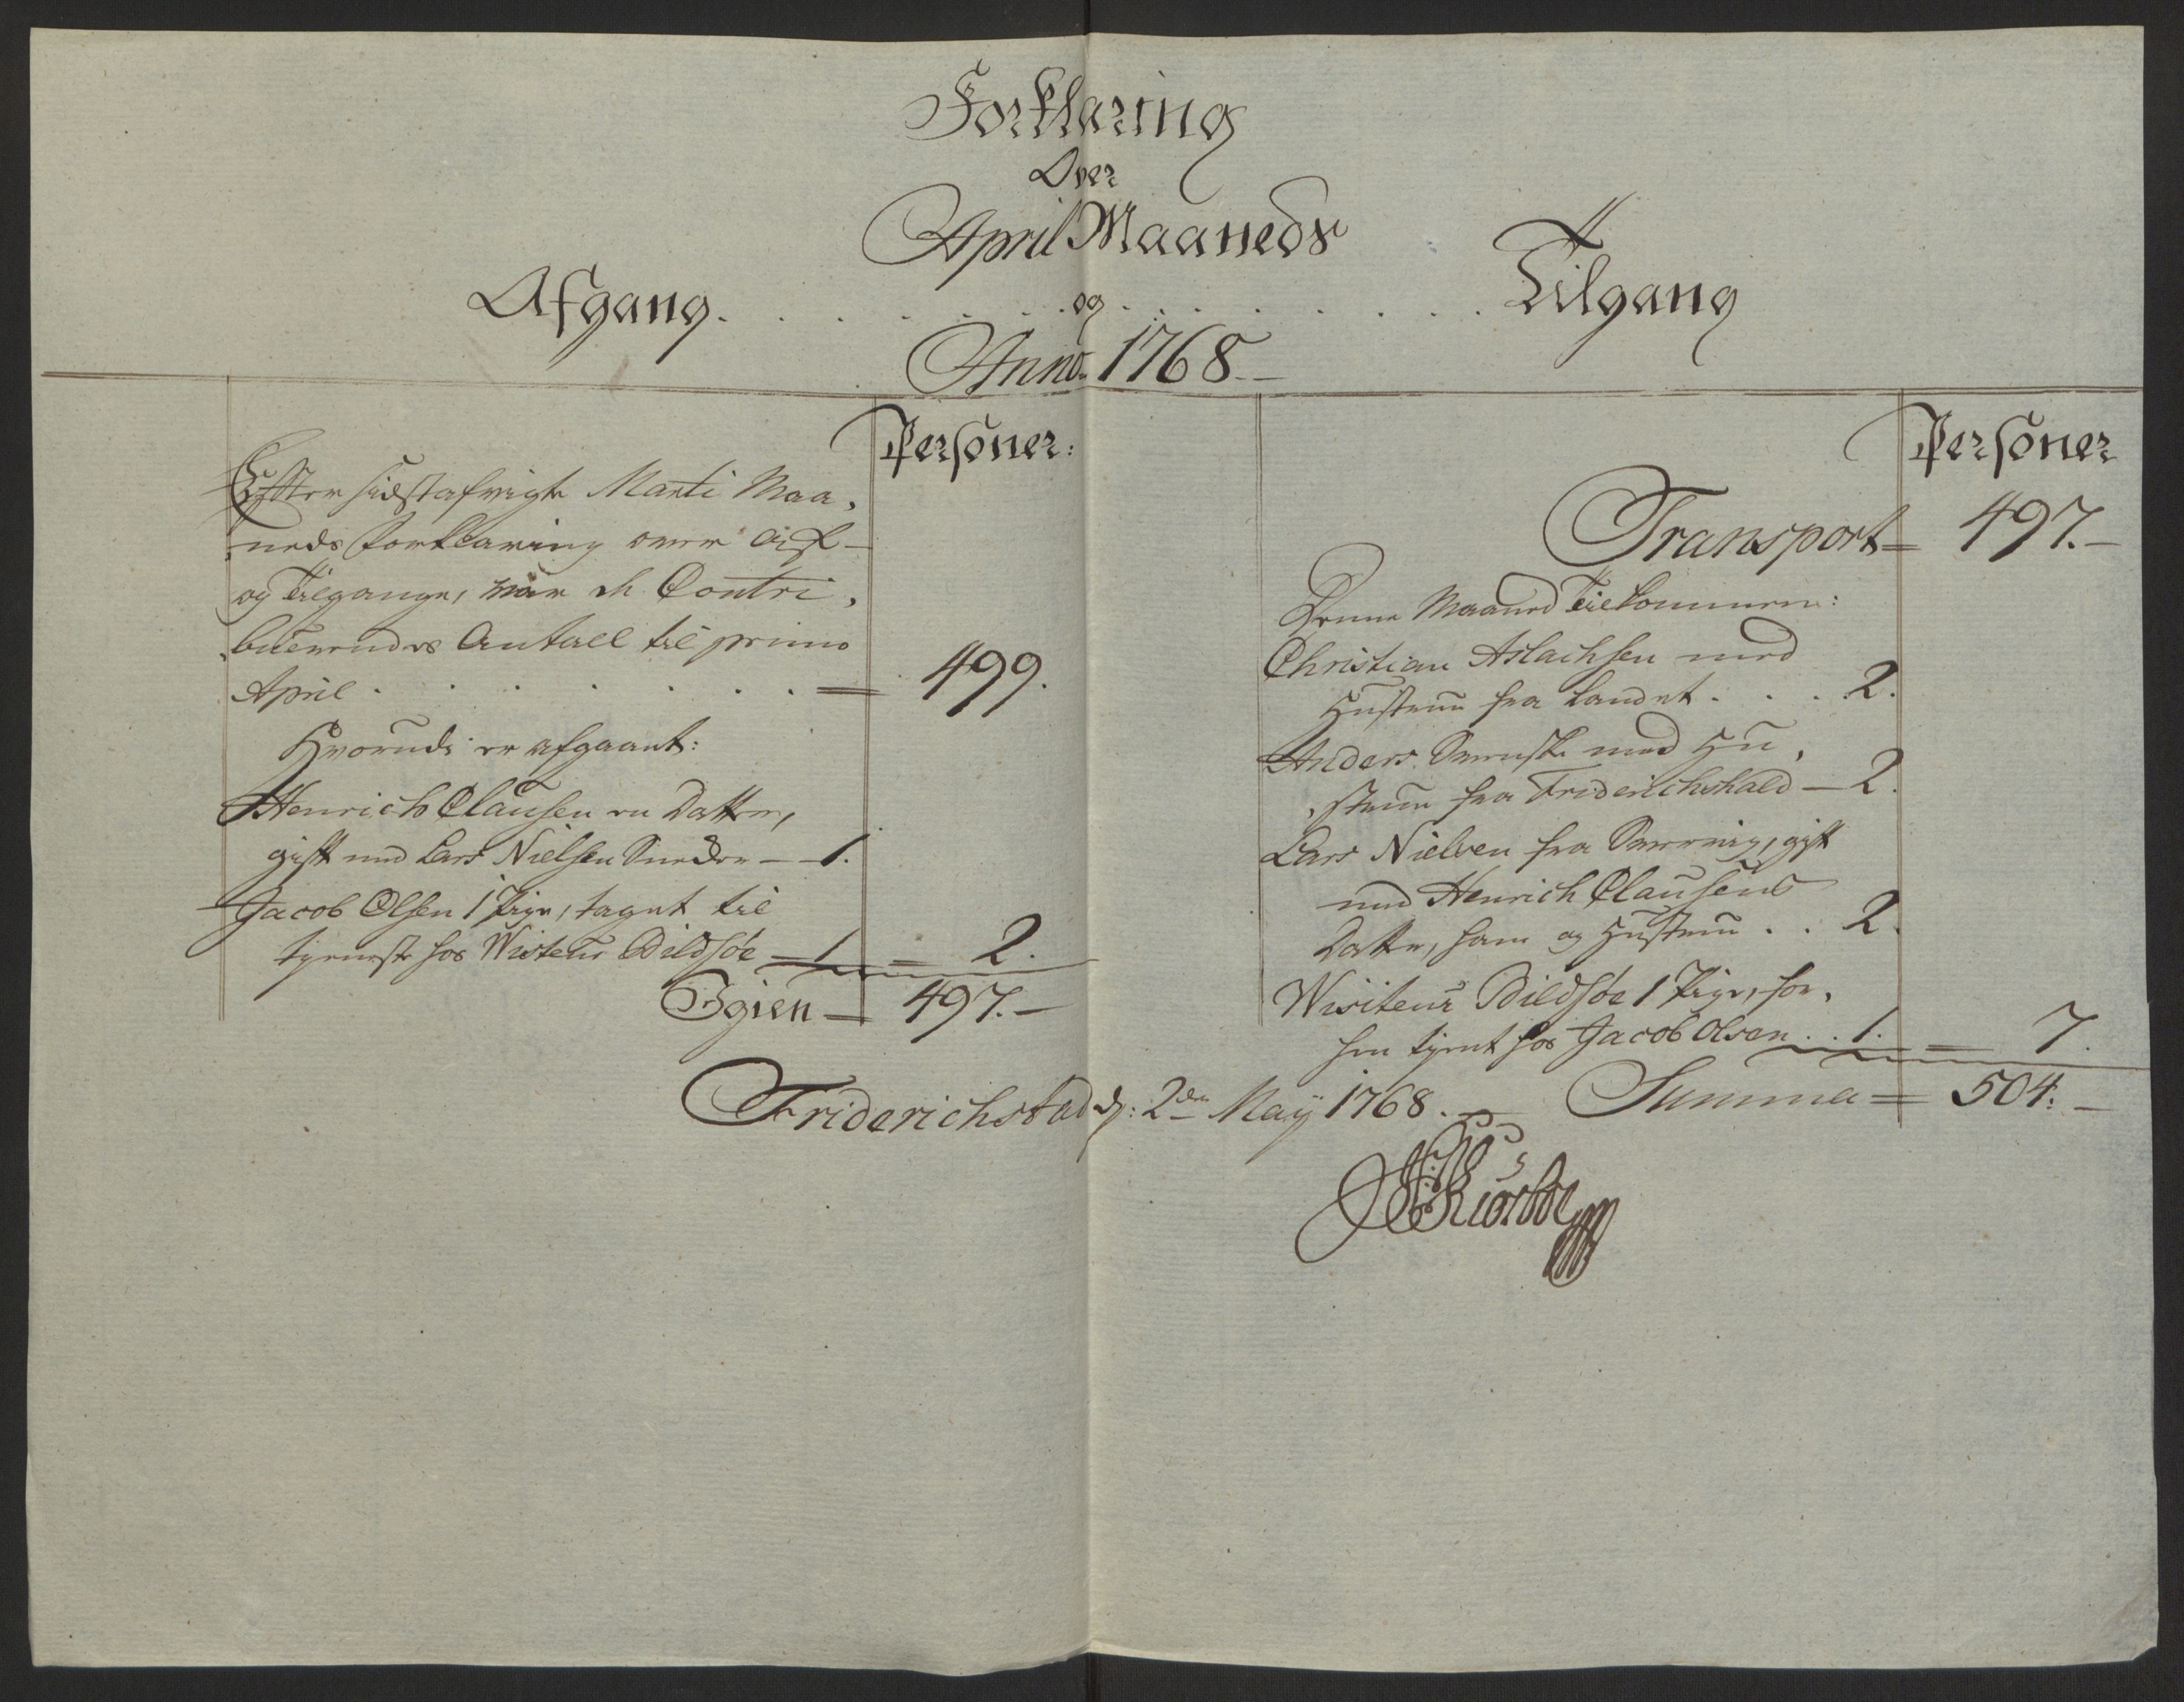 Forklaring
Over
April Maaneds
Afgang . . . . . . . og . . . . . . . Tilgang
Anno 1768
Personer:
Efter sidstafvigte Marti Maa-
neds Forklaring over Af-
og Tilgange, var de Contri-
buerendes Antall til primo
April . . . . . . . = 499.
Hvorudi er afgaaet:
Henrich Clausen en Datter,
gift med Lars Nielsen Sneder — 1.
Jacob Olsen 1 Pige, taget til
tjeneste hos Visteur Bildsøe — 1 = 2.
Igien — 497.—
Personer
Transport = 497.—
Denne Maaned Tilkommen:
Christian Aslachsen med
Hustrue fra Landet . . . 2.
Anders Svenske med Hu-
strue fra Friderichshald — 2.
Lars Nielsen fra Sverrig, gift
med Henrich Clausens
Datter, ham og Hustrue . . 2.
Visiteur Bildsøe 1 Pige, for-
hen tjent hos Jacob Olsen . . 1. = 7.
Summa = 504:—
Friderichstad d: 2den Maÿ 1768.